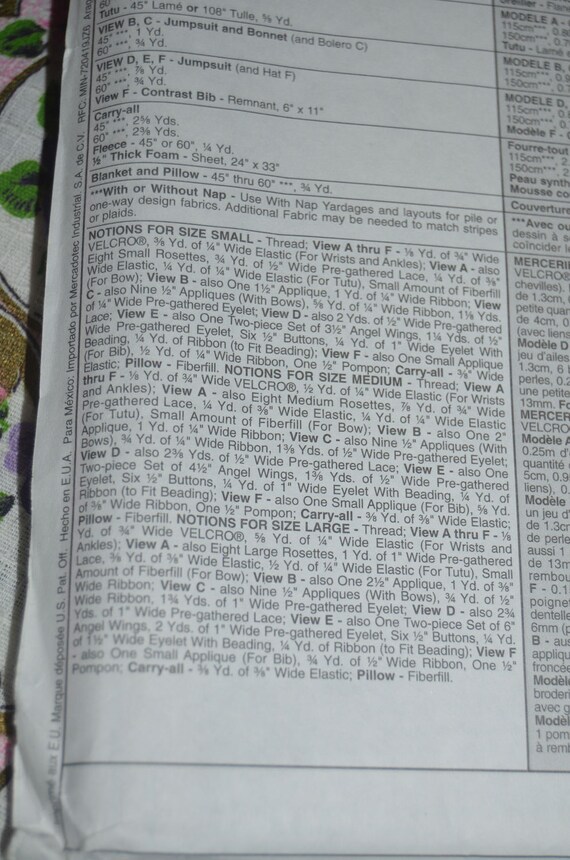 60"
Tutu - 45" Lamé or 108" Tulle, ⅝ Yd.
VIEW B, C - Jumpsuit and Bonnet (and Bolero C)
45" ***, 1 Yd.
60" ***, ¾ Yd.
VIEW D, E, F - Jumpsuit (and Hat F)
45" ***, ⅞ Yd.
60" ***, ¾ Yd.
View F - Contrast Bib - Remnant, 6" x 11"
Carry-all
45" ***, 2⅜ Yds.
60" ***, 2⅜ Yds.
Fleece - 45" or 60", ¼ Yd.
½" Thick Foam - Sheet, 24" x 33"
Blanket and Pillow - 45" thru 60" ***, ¾ Yd.
***With or Without Nap - Use With Nap Yardages and layouts for pile or
one-way design fabrics. Additional Fabric may be needed to match stripes
or plaids.
NOTIONS FOR SIZE SMALL - Thread; View A thru F - ⅛ Yd. of ¾" Wide
VELCRO®, ⅜ Yd. of ¼" Wide Elastic (For Wrists and Ankles); View A - also
Eight Small Rosettes, ¾ Yd. of ½" Wide Pre-gathered Lace, ¼ Yd. of ⅜"
Wide Elastic, ¼ Yd. of ¼" Wide Elastic (For Tutu), Small Amount of Fiberfill
(For Bow); View B - also One 1½" Applique, 1 Yd. of ¼" Wide Ribbon; View
C - also Nine ½" Appliques (With Bows), ⅝ Yd. of ¼" Wide Ribbon, 1⅛ Yds.
of ¼" Wide Pre-gathered Eyelet; View D - also 2 Yds. of ½" Wide Pre-gathered
Lace; View E - also One Two-piece Set of 3½" Angel Wings, 1¼ Yds. of ½"
Wide Pre-gathered Eyelet, Six ½" Buttons, ¼ Yd. of 1" Wide Eyelet With
Beading, ¼ Yd. of Ribbon (to Fit Beading); View F - also One Small Applique
(For Bib), ½ Yd. of ¼" Wide Ribbon, One ½" Pompon; Carry-all - ⅜" Wide
Elastic; Pillow - Fiberfill. NOTIONS FOR SIZE MEDIUM - Thread; View A
thru F - ⅛ Yd. of ¾" Wide VELCRO®, ½ Yd. of ¼" Wide Elastic (For Wrists
and Ankles); View A - also Eight Medium Rosettes, ⅞ Yd. of ¾" Wide
Pre-gathered Lace, ¼ Yd. of ⅜" Wide Elastic, ¼ Yd. of ¼" Wide Elastic
(For Tutu), Small Amount of Fiberfill (For Bow); View B - also One 2"
Applique, 1 Yd. of ¼" Wide Ribbon; View C - also Nine ½" Appliques (With
Bows), ¾ Yd. of ¼" Wide Ribbon, 1⅜ Yds. of ½" Wide Pre-gathered Eyelet;
View D - also 2⅜ Yds. of ½" Wide Pre-gathered Lace; View E - also One
Two-piece Set of 4½" Angel Wings, 1⅜ Yds. of ½" Wide Pre-gathered
Eyelet, Six ½" Buttons, ¼ Yd. of 1" Wide Eyelet With Beading, ¼ Yd. of
Ribbon (to Fit Beading); View F - also One Small Applique (For Bib), ⅝ Yd.
of ⅜" Wide Ribbon, One ½" Pompon; Carry-all - ⅜ Yd. of ⅜" Wide Elastic;
Pillow - Fiberfill. NOTIONS FOR SIZE LARGE - Thread; View A thru F - ⅛
Yd. of ¾" Wide VELCRO®, ⅝ Yd. of ¼" Wide Elastic (For Wrists and
Ankles); View A - also Eight Large Rosettes, 1 Yd. of 1" Wide Pre-gathered
Lace, ⅜ Yd. of ⅜" Wide Elastic, ½ Yd. of ¼" Wide Elastic (For Tutu), Small
Amount of Fiberfill (For Bow); View B - also One 2½" Applique, 1 Yd. of ⅜"
Wide Ribbon; View C - also Nine ½" Appliques (With Bows), ¾ Yd. of ½"
Wide Ribbon, 1¾ Yds. of 1" Wide Pre-gathered Eyelet; View D - also 2¾
Yds. of 1" Wide Pre-gathered Lace; View E - also One Two-piece Set of 6"
Angel Wings, 2 Yds. of 1" Wide Pre-gathered Eyelet, Six ½" Buttons, ¼ Yd.
of 1½" Wide Eyelet With Beading, ¼ Yd. of Ribbon (to Fit Beading); View F
- also One Small Applique (For Bib), ¾ Yd. of ½" Wide Ribbon, One ½"
Pompon; Carry-all - ⅜ Yd. of ⅜" Wide Elastic; Pillow - Fiberfill.
aux E.U. Marque déposée U.S. Pat. Off. Hecho en E.U.A. Para México: Importado por Mercadotec Industrial, S.A. de C.V. RFC. MIN-720419JZ6
MODELE A -
115cm***, 0.8
150cm***, 0.7
Tutu - Lamé
MODELE B,
115cm***, 0.9
150cm***, 0.
MODELE D,
115cm***, 0.
150cm***, 0.
Modèle F -
Fourre-tout
115cm***, 2.
150cm***, 2
Peau synth
Mousse co
Couverture
***Avec ou
dessin à s
coïncider l
MERCERI
VELCRO®
chevilles).
de 1.3cm,
petite quan
1.4cm, 0
(avec liens
Modèle D
jeu d'ailes
1.3cm, 6
perles, 0.2
une petite
13mm. Fo
MERCER
VELCRO
Modèle A
0.25m d'é
quantité
5cm, 0.9
liens), 0.
Modèle
un jeu d'
de 1.3c
de perle
aussi 1
de 13m
rembou
F - 0.1
poigne
dentelle
élastiq
6mm (p
B - aus
appliqu
froncée
Modèl
broderi
avec g
Modèl
1 pom
à remb